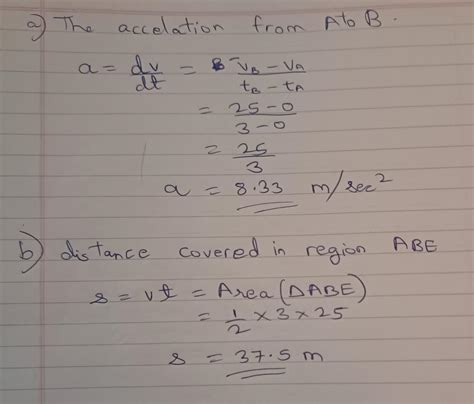 a) The accelation from A to B.
a = dv/dt = (V_B - V_A)/(t_B - t_A)
= (25-0)/(3-0)
= 25/3
a = 8.33 m/sec²
b) distance covered in region ABE
s = vt = Area (△ABE)
= 1/2 × 3 × 25
s = 37.5 m